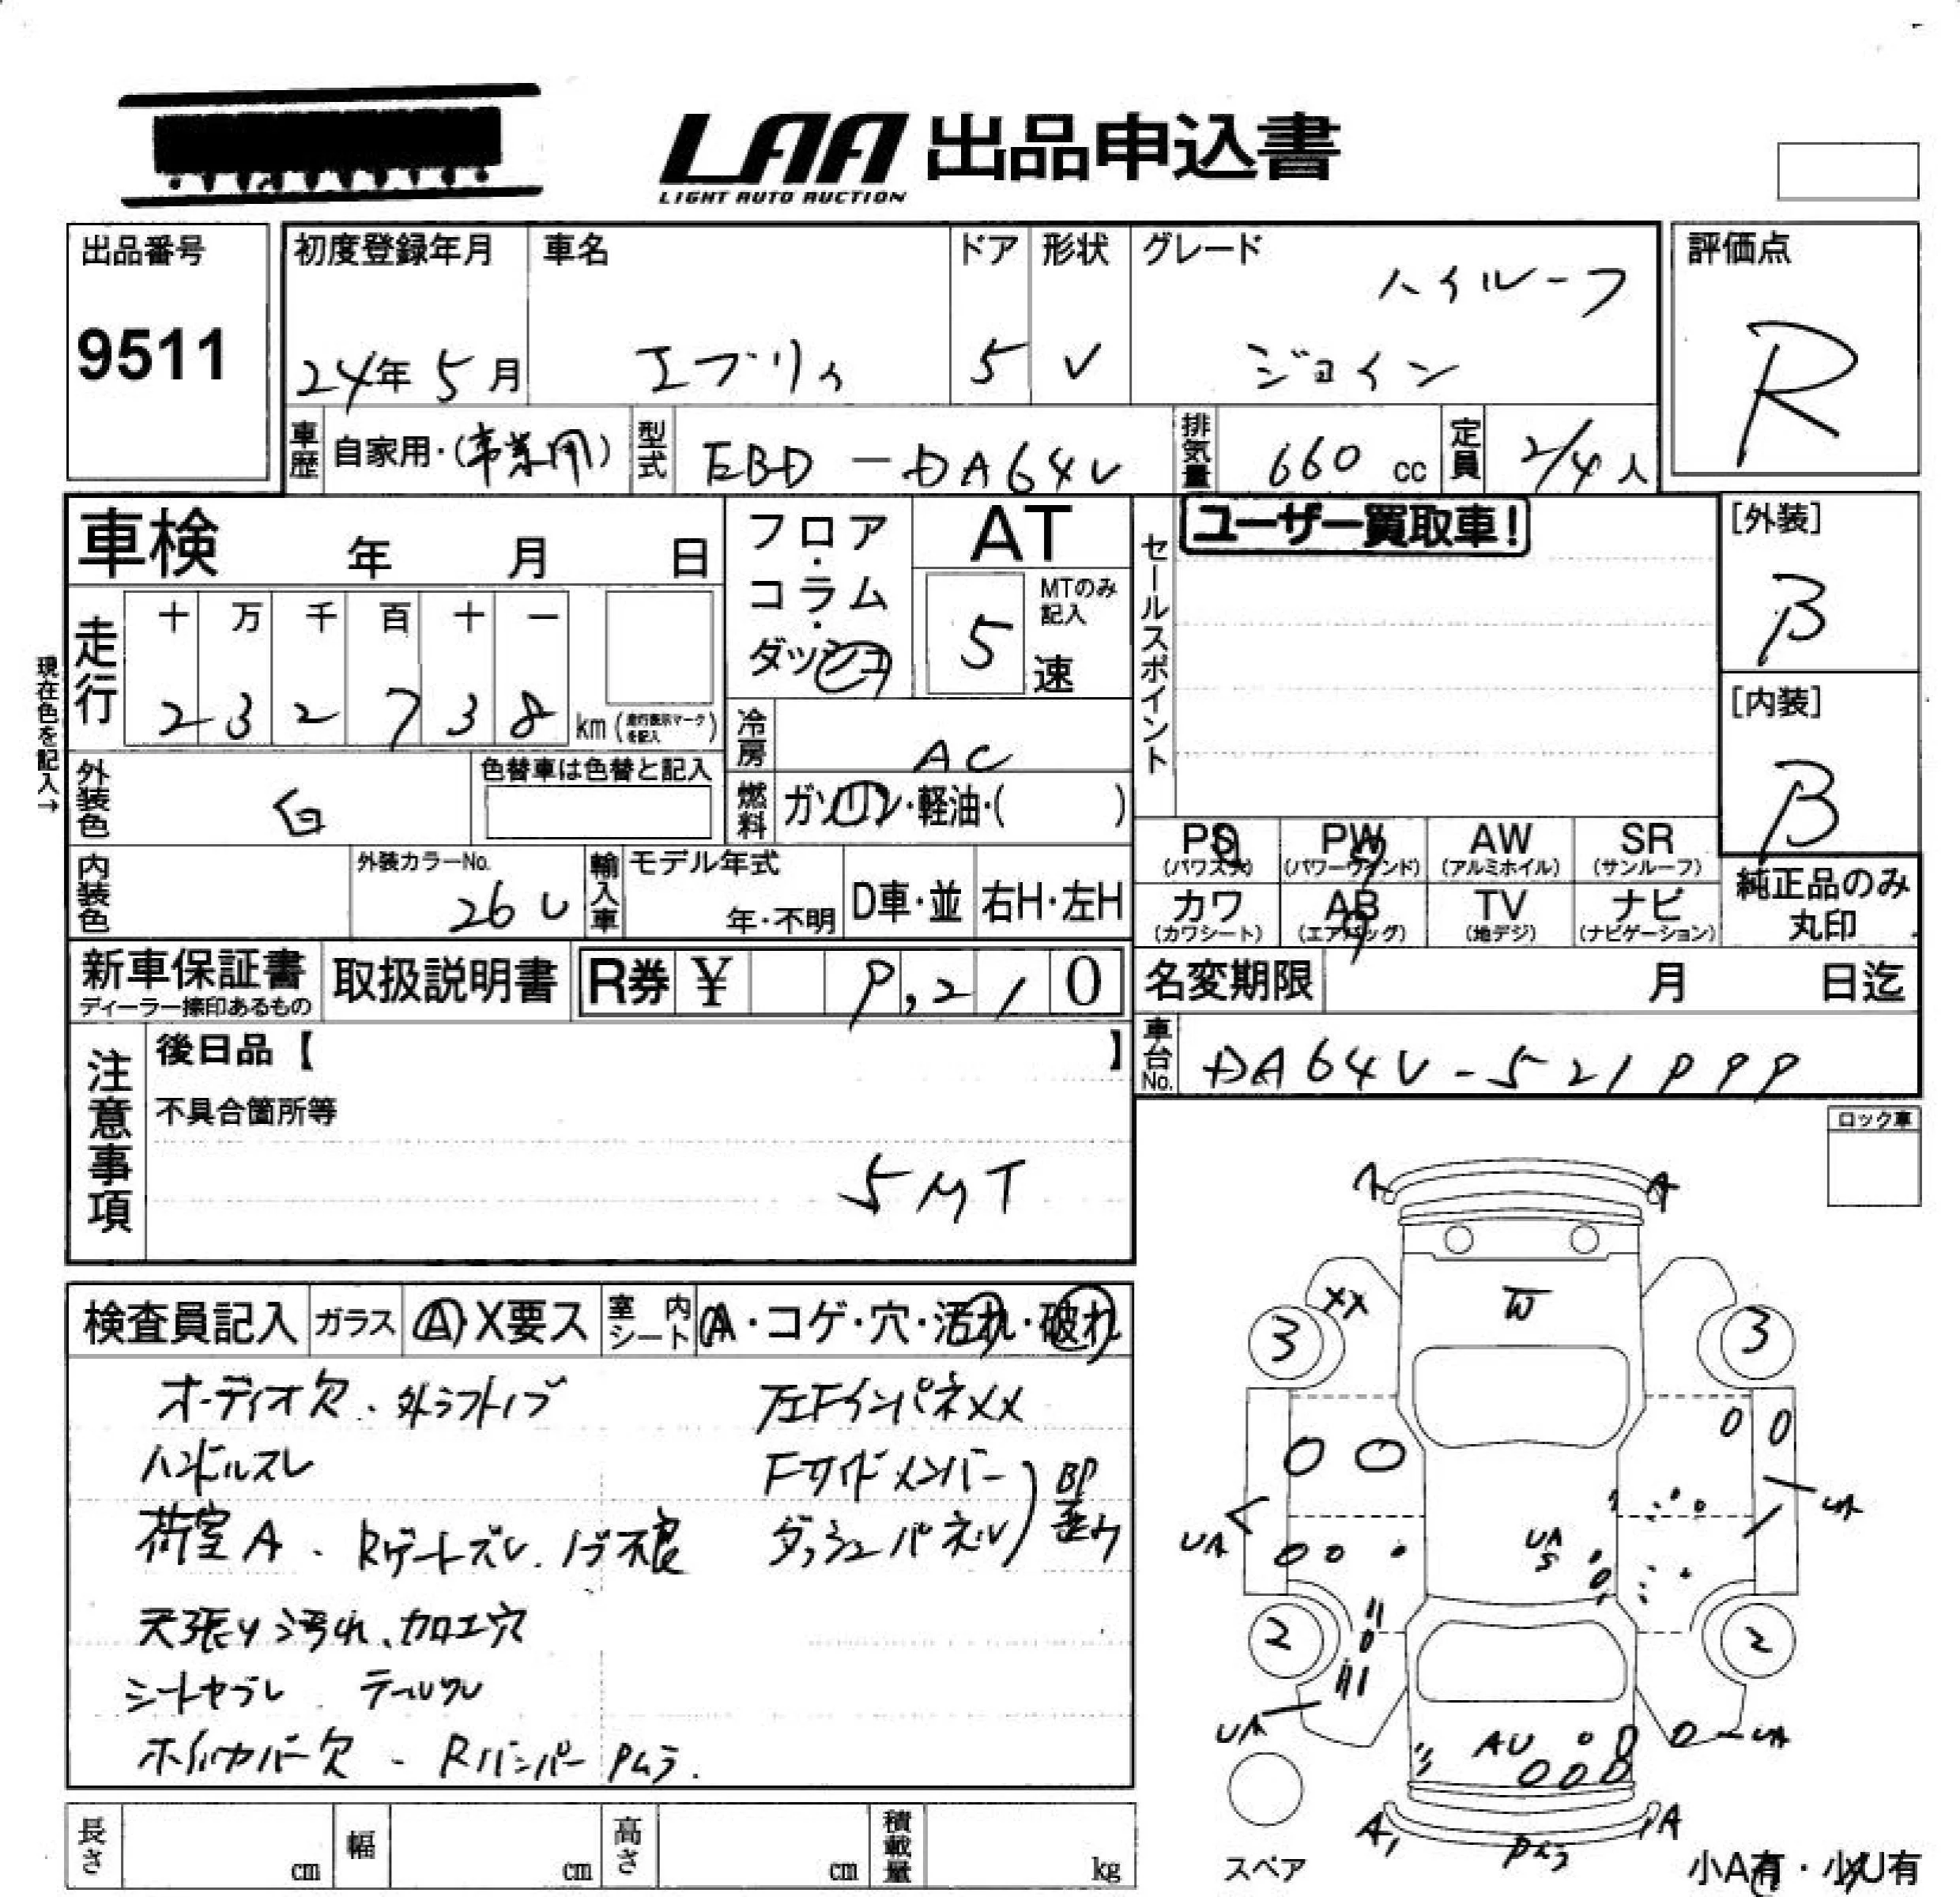 LAA 出品申込書
LIGHT AUTO AUCTION
出品番号
9511
初度登録年月
24年 5月
車名
エブリィ
ドア
5
形状
V
グレード
ハイルーフ
ジョイン
評価点
R
車歴
自家用・(事業用)
型式
EBD-DA64V
排気量
660 cc
定員
2/4人
車検 年 月 日
フロア・コラム・ダッシュ
AT
5速
MTのみ記入
セールスポイント
ユーザー買取車!
[外装]
B
[内装]
B
現在色を記入→
走行
十 万 千 百 十 一
2 3 2 7 3 8 km (走行表示マークを記入)
冷房
AC
外装色
白
色替車は色替と記入
燃料
ガソリン・軽油・( )
内装色
外装カラーNo.
26U
輸入車
モデル年式
年・不明
D車・並
右H・左H
PS
(パワステ)
PW
(パワーウインド)
AW
(アルミホイル)
SR
(サンルーフ)
カワ
(カワシート)
AB
(エアバッグ)
TV
(地デジ)
ナビ
(ナビゲーション)
純正品のみ
丸印
新車保証書
ディーラー捺印あるもの
取扱説明書
R券 ¥ 9,210
名変期限 月 日迄
車台No.
DA64V-521999
注意事項
後日品【 】
不具合箇所等
5MT
ロック車
検査員記入
ガラス
A・X要ス
室内シート
A・コゲ・穴・汚れ・破れ
オーディオ欠・社外シフトノブ
ハンドルスレ
荷室A・Rゲートズレ、ノブ不良
天張り汚れ、加工穴
シートヤブレ テールワレ
ホイルカバー欠・Rバンパー Pムラ.
左FインパネXX
Fサイドメンバー
ダッシュパネル
BP
歪み
A
A
XX
W
3
3
UA
UA
UA
S
2
2
UA
AU
UA
A
A
Pムラ
スペア
小A有・小U有
長さ cm
幅 cm
高さ cm
積載量 kg